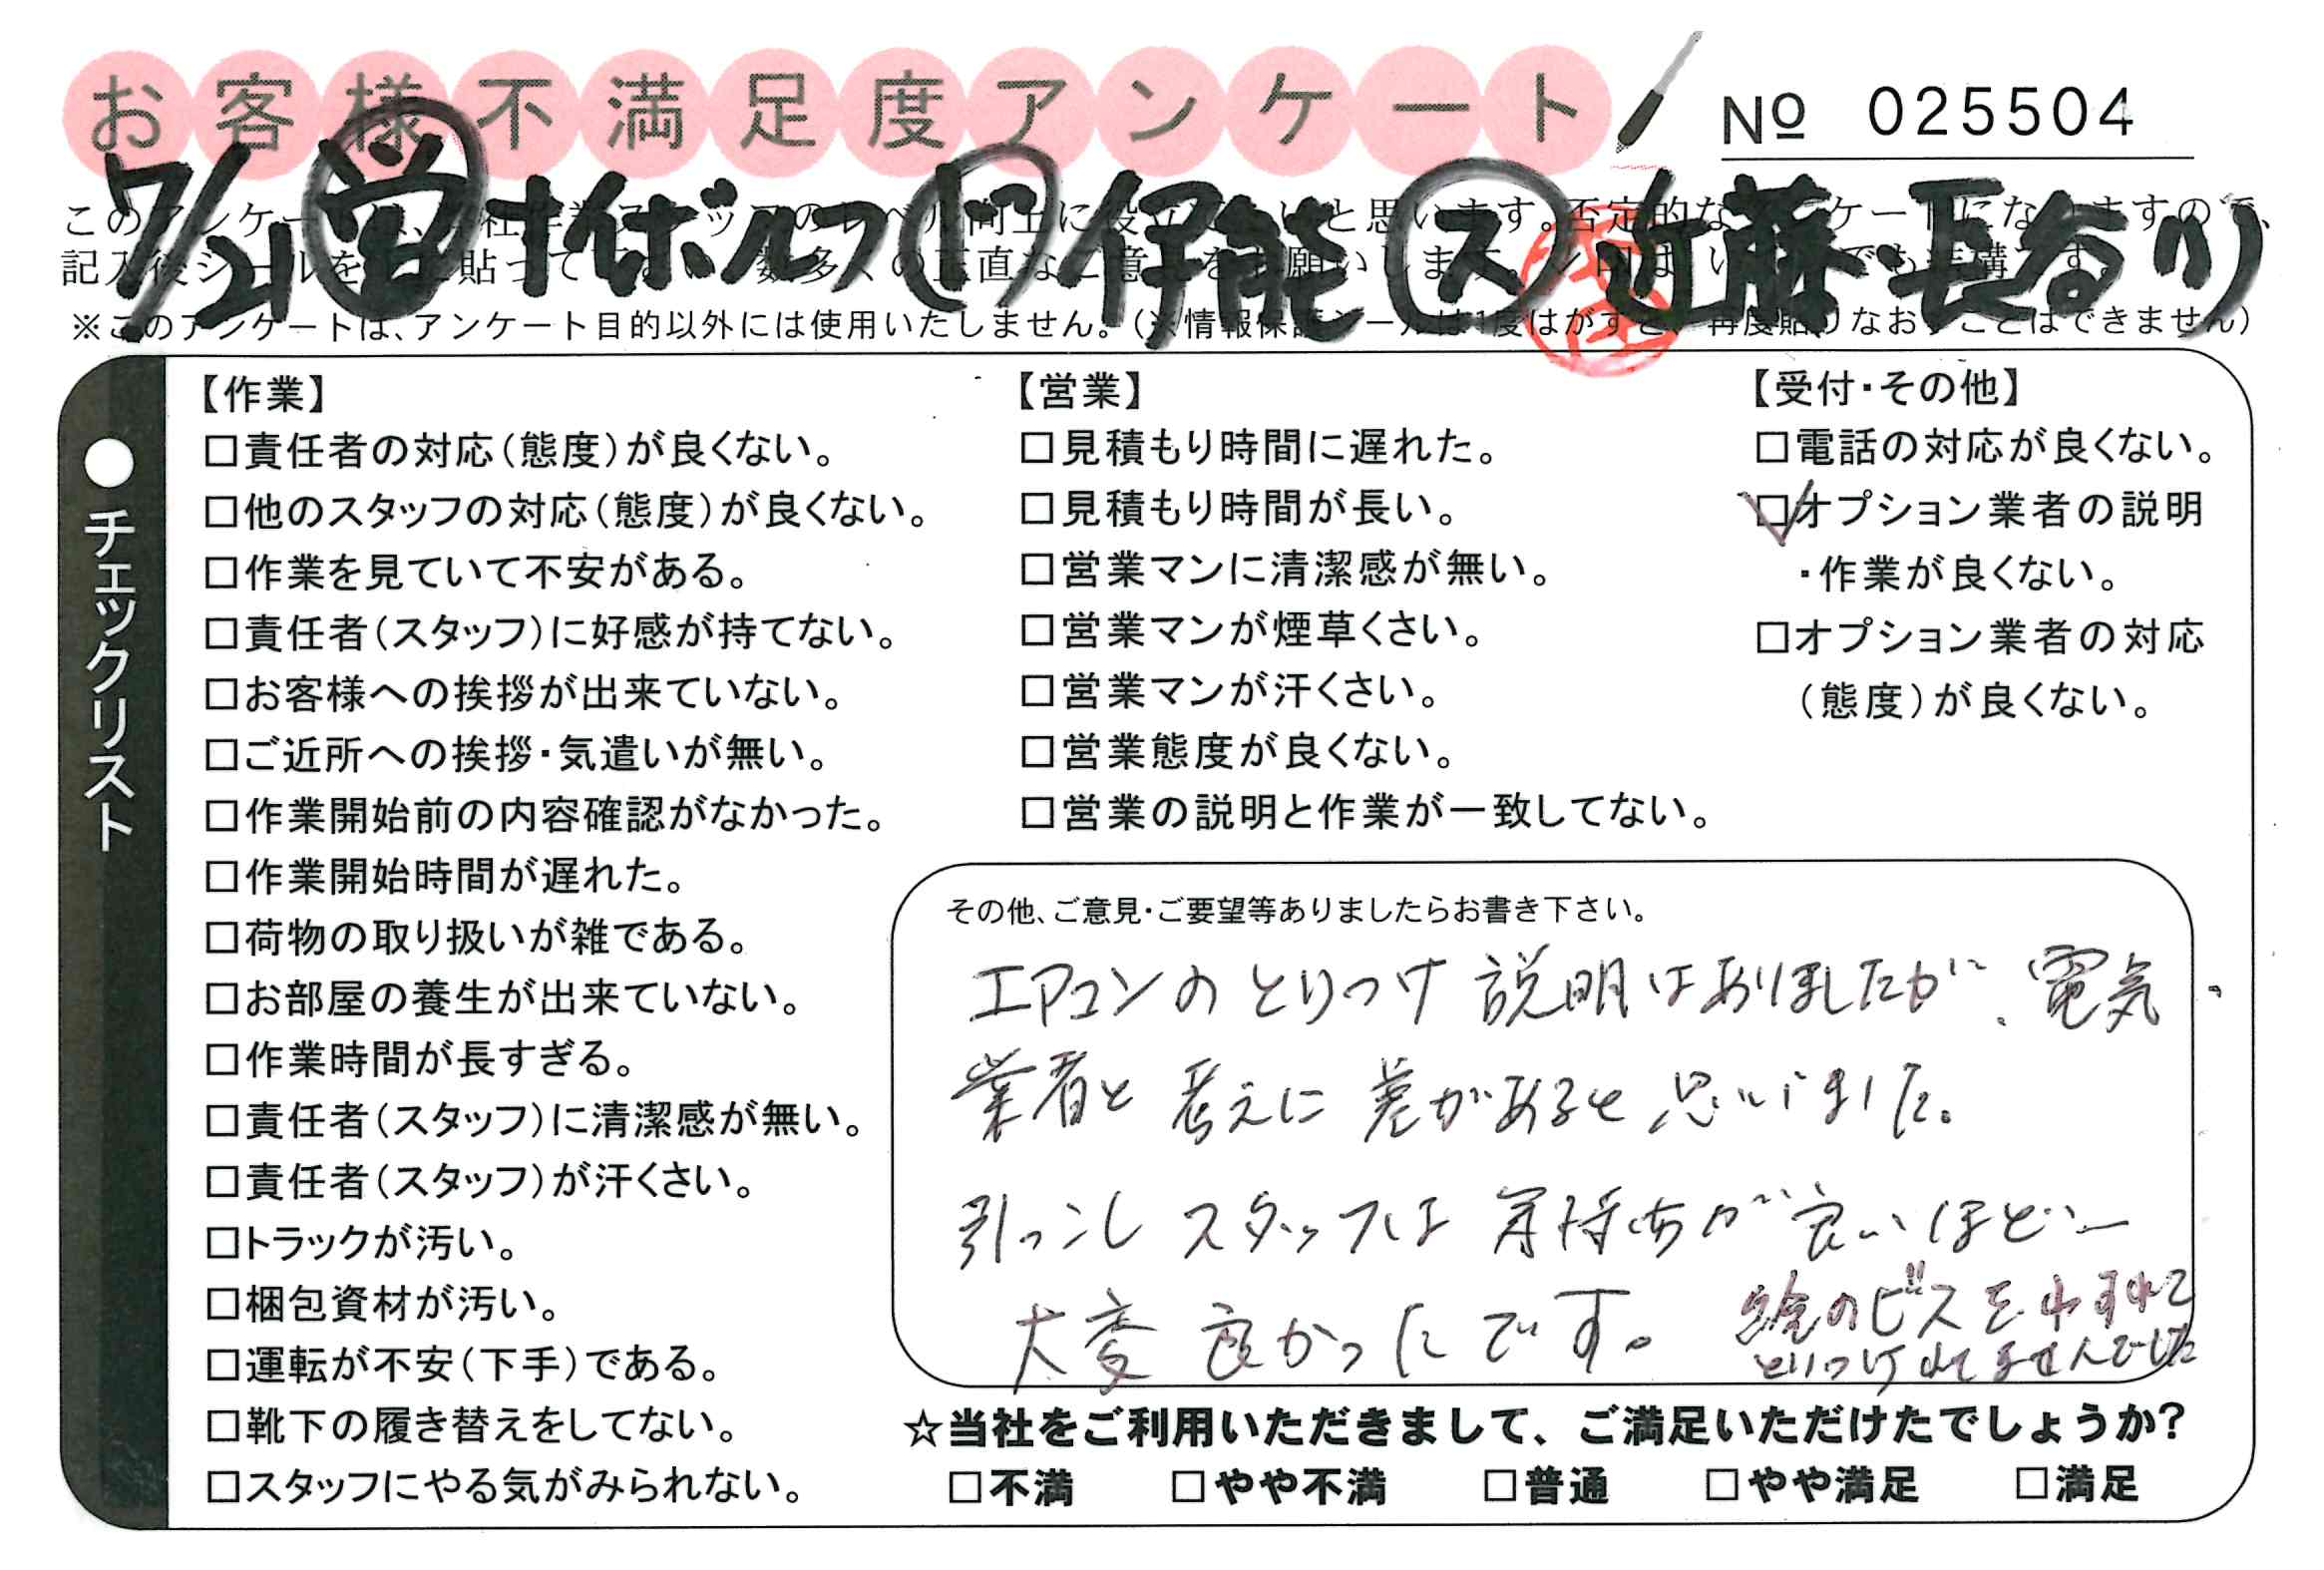 お客様不満足度アンケート
№ 025504
7/21 営 オイボルフ ド 伊能 ス 近藤・長谷川
※このアンケートは、アンケート目的以外には使用いたしません。(※情報保護シールは1度はがすと、再度貼りなおすことはできません)
●チェックリスト
【作業】
□責任者の対応(態度)が良くない。
□他のスタッフの対応(態度)が良くない。
□作業を見ていて不安がある。
□責任者(スタッフ)に好感が持てない。
□お客様への挨拶が出来ていない。
□ご近所への挨拶・気遣いが無い。
□作業開始前の内容確認がなかった。
□作業開始時間が遅れた。
□荷物の取り扱いが雑である。
□お部屋の養生が出来ていない。
□作業時間が長すぎる。
□責任者(スタッフ)に清潔感が無い。
□責任者(スタッフ)が汗くさい。
□トラックが汚い。
□梱包資材が汚い。
□運転が不安(下手)である。
□靴下の履き替えをしてない。
□スタッフにやる気がみられない。
【営業】
□見積もり時間に遅れた。
□見積もり時間が長い。
□営業マンに清潔感が無い。
□営業マンが煙草くさい。
□営業マンが汗くさい。
□営業態度が良くない。
□営業の説明と作業が一致してない。
【受付・その他】
□電話の対応が良くない。
☑オプション業者の説明
・作業が良くない。
□オプション業者の対応
(態度)が良くない。
その他、ご意見・ご要望等ありましたらお書き下さい。
エアコンのとりつけ説明はありましたが、電気
業者と考えに差があると思いました。
引っこしスタッフは気持ちが良いほどー
大変良かったです。
絵のビスをわすれて
とりつけれてませんでした
☆当社をご利用いただきまして、ご満足いただけたでしょうか?
□不満 □やや不満 □普通 □やや満足 □満足